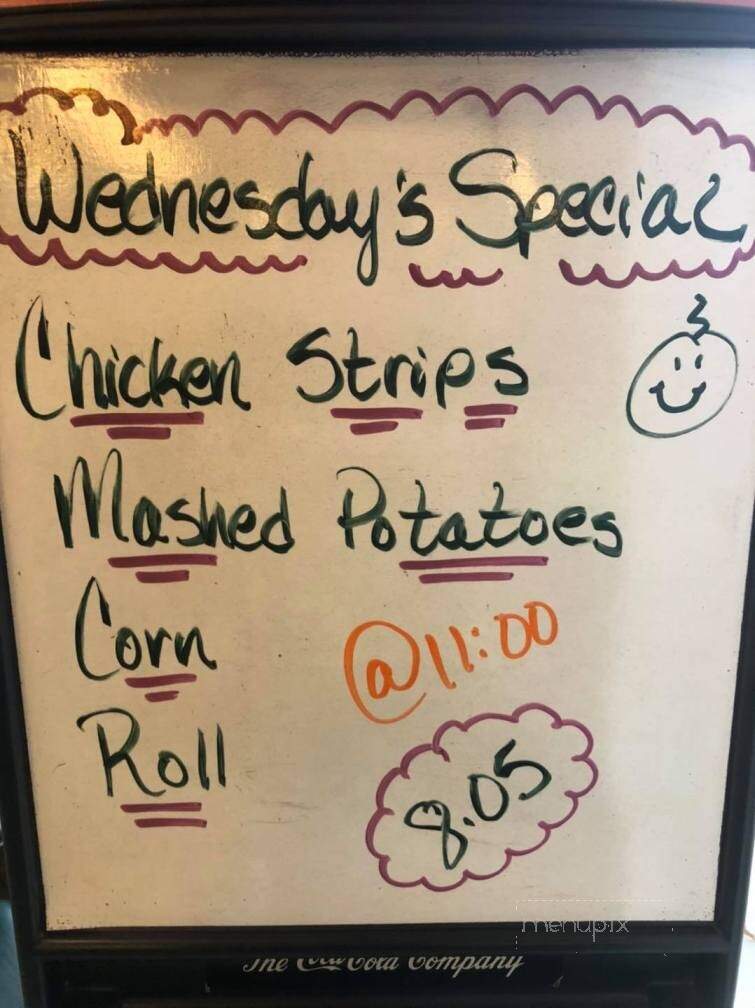 Wednesday's Special
Chicken Strips
Mashed Potatoes
Corn
@11:00
Roll
8.05
menupix
The Coca-Cola Company